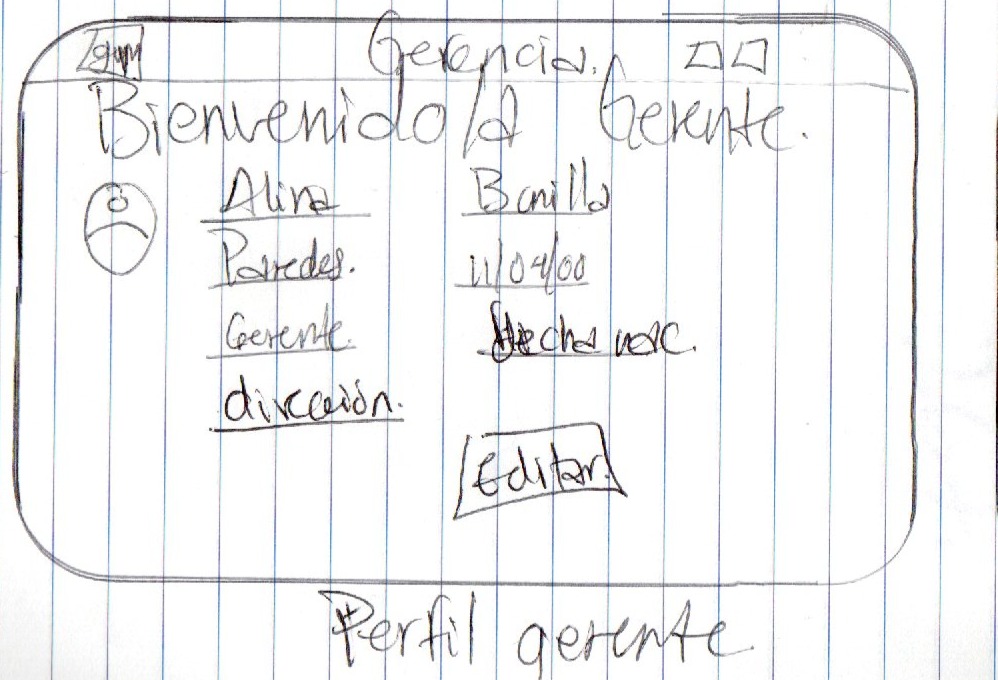 Gerencia.
Bienvenido/a Gerente.
Alina Bonilla
Paredes. 11/04/00
Gerente. Fecha nac.
dirección.
Editar.
Perfil gerente